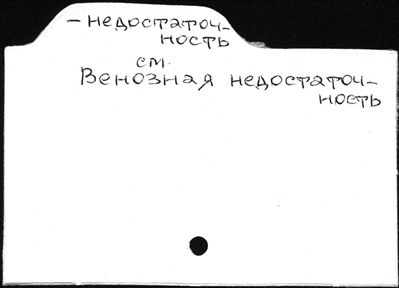 – недостаточ-
ность
см.
Венозная недостаточ-
ность